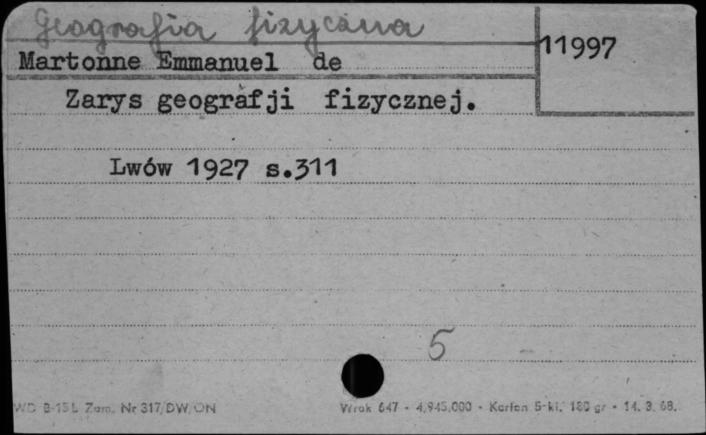 Geografia fizyczna
11997
Martonne Emmanuel de
Zarys geografji fizycznej.
Lwów 1927 s.311
5
WD B-15L Zam. Nr 317/DW/ON Wrak 647 - 4.945.000 - Karton 5-kl. 180 gr - 14. 3. 68.